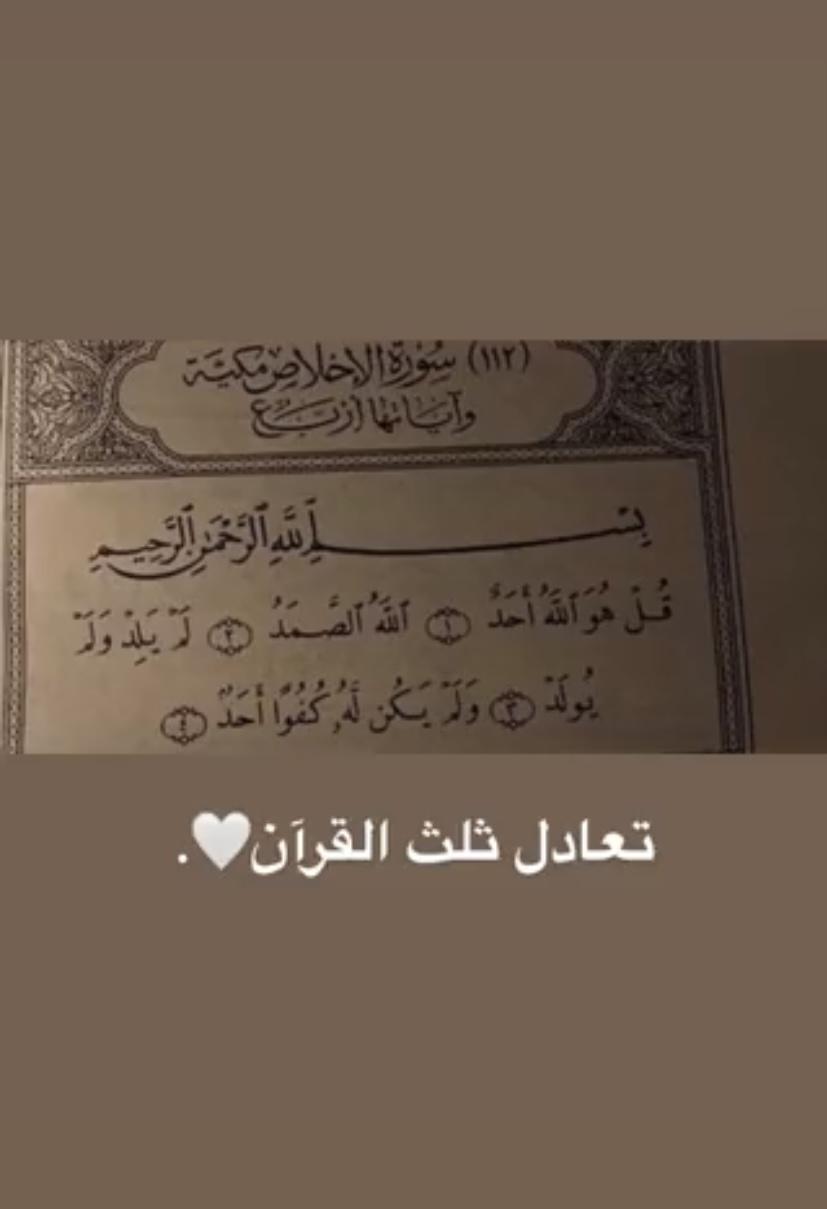 (١١٢) سُورَةُ الإِخلَاصِ مَكيَّة
وَآيَاتهَا أَرْبَع
بِسْمِ ٱللَّهِ ٱلرَّحْمَٰنِ ٱلرَّحِيمِ
قُلْ هُوَ ٱللَّهُ أَحَدٌ ١ ٱللَّهُ ٱلصَّمَدُ ٢ لَمْ يَلِدْ وَلَمْ
يُولَدْ ٣ وَلَمْ يَكُن لَّهُۥ كُفُوًا أَحَدٌۢ ٤
تعادل ثلث القرآن🤍.